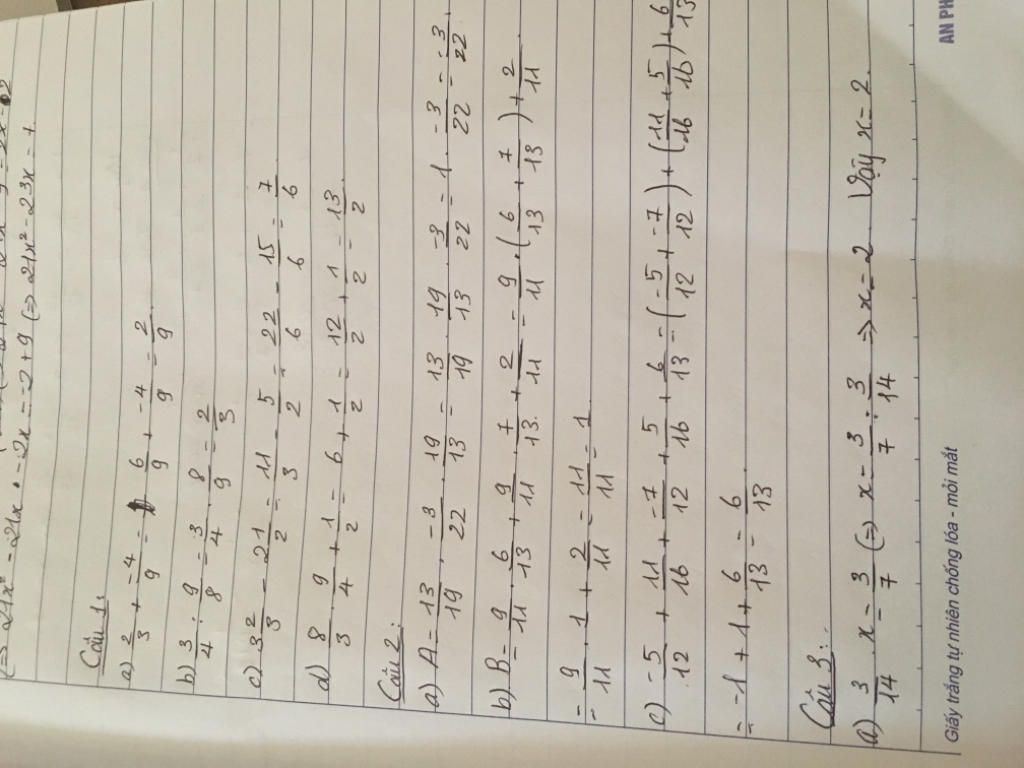 (=> 21x² - 21x - 2x = -2 + 9 (=> 21x² - 23x = 7
Câu 1:
a) 2/3 + -4/9 = 6/9 + -4/9 = 2/9
b) 3/4 : 9/8 = 3/4 . 8/9 = 2/3
c) 3 2/3 - 2 1/2 = 11/3 - 5/2 = 22/6 - 15/6 = 7/6
d) 8/3 . 9/4 + 1/2 = 6 + 1/2 = 12/2 + 1/2 = 13/2
Câu 2:
a) A = 13/19 . -3/22 . 19/13 = 13/19 . 19/13 . -3/22 = 1 . -3/22 = -3/22
b) B = 9/11 . 6/13 + 9/11 . 7/13 + 2/11 = 9/11 . (6/13 + 7/13) + 2/11
= 9/11 . 1 + 2/11 = 11/11 = 1
c) -5/12 + 11/16 + -7/12 + 5/16 + 6/13 = (-5/12 + -7/12) + (11/16 + 5/16) + 6/13
= -1 + 1 + 6/13 = 6/13
Câu 3:
a) 3/14 . x = 3/7 (=> x = 3/7 : 3/14 => x = 2 Vậy x = 2.
Giấy trắng tự nhiên chống lóa - mỏi mắt
AN PH